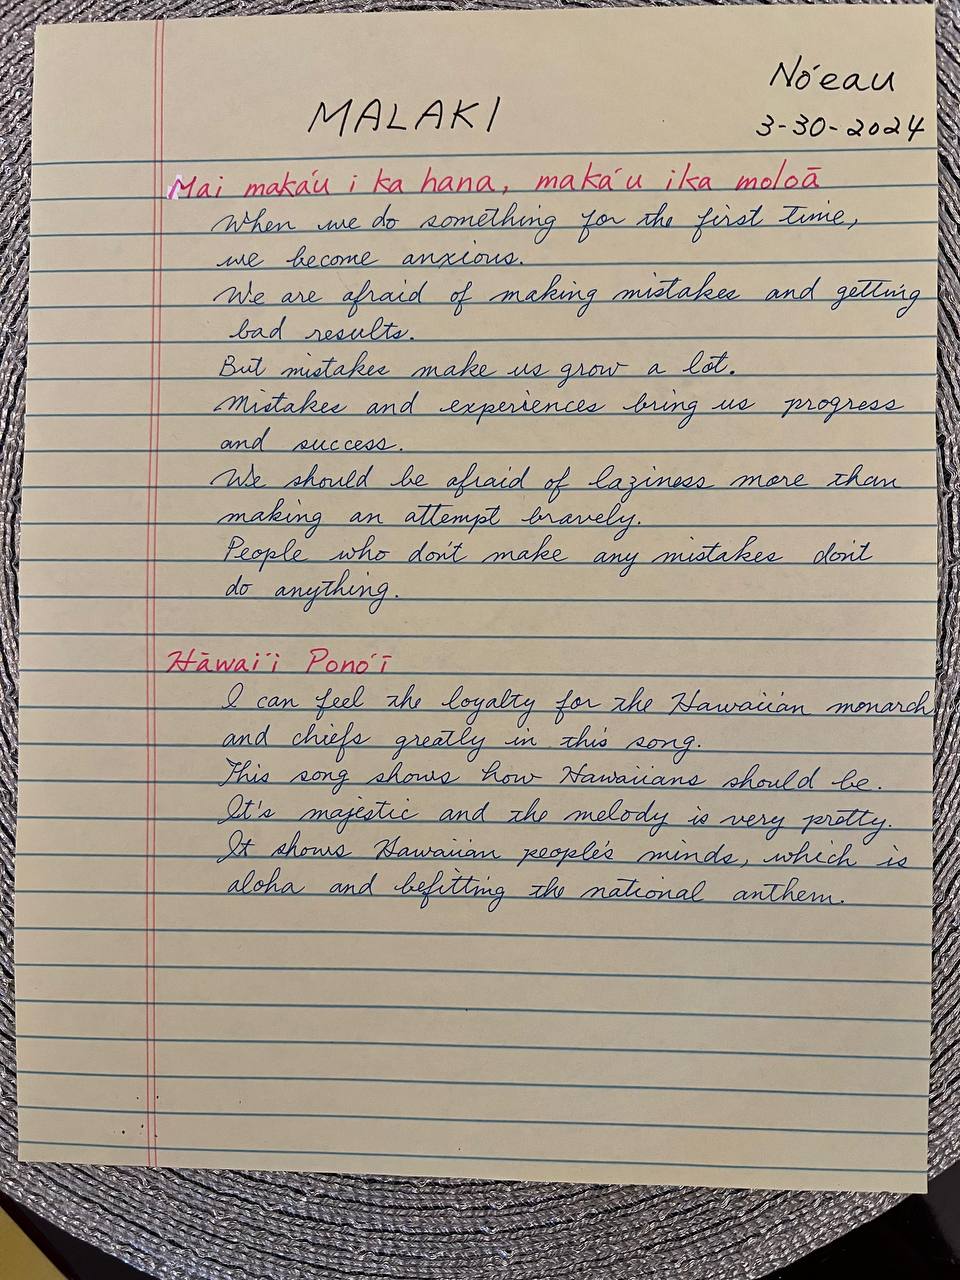 No'eau
MALAKI
3-30-2024
Mai maka'u i ka hana, maka'u ika moloā
When we do something for the first time,
we become anxious.
We are afraid of making mistakes and getting
bad results.
But mistakes make us grow a lot.
Mistakes and experiences bring us progress
and success.
We should be afraid of laziness more than
making an attempt bravely.
People who don't make any mistakes don't
do anything.
Hāwai'i Pono'ī
I can feel the loyalty for the Hawaiian monarch
and chiefs greatly in this song.
This song shows how Hawaiians should be.
It's majestic and the melody is very pretty.
It shows Hawaiian people's minds, which is
aloha and befitting the national anthem.